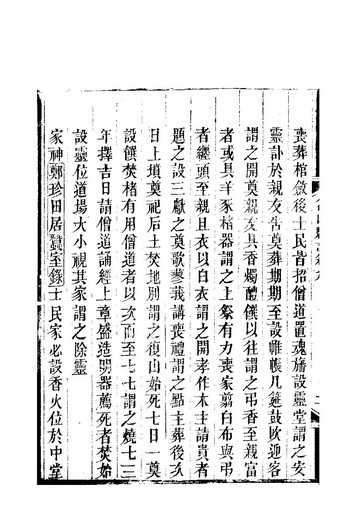 喪葬棺斂後士民皆招僧道置魂旛設靈堂謂之安
靈訃於親友告奠葬期期至設帷帳几筵鼓吹迎客
謂之開奠親友具香燭醴饌以往謂之弔香至親富
者或具羊豕楮器謂之上祭有力喪家易白布與弔
者纏頭至親且衣以白衣謂之開孝作木主請貴者
題之設三獻之奠歌蓼莪講喪禮謂之點主葬後次
日上墳奠祀后土焚地別謂之復山始死七日一奠
設饌焚楮有用僧道者以次而至七七謂之燒七三
年擇吉日請僧道誦經上章盛造明器薦死者焚始
設靈位道場大小視其家謂之除靈
家神鄭珍田居蠶室錄士民家必設香火位於中堂